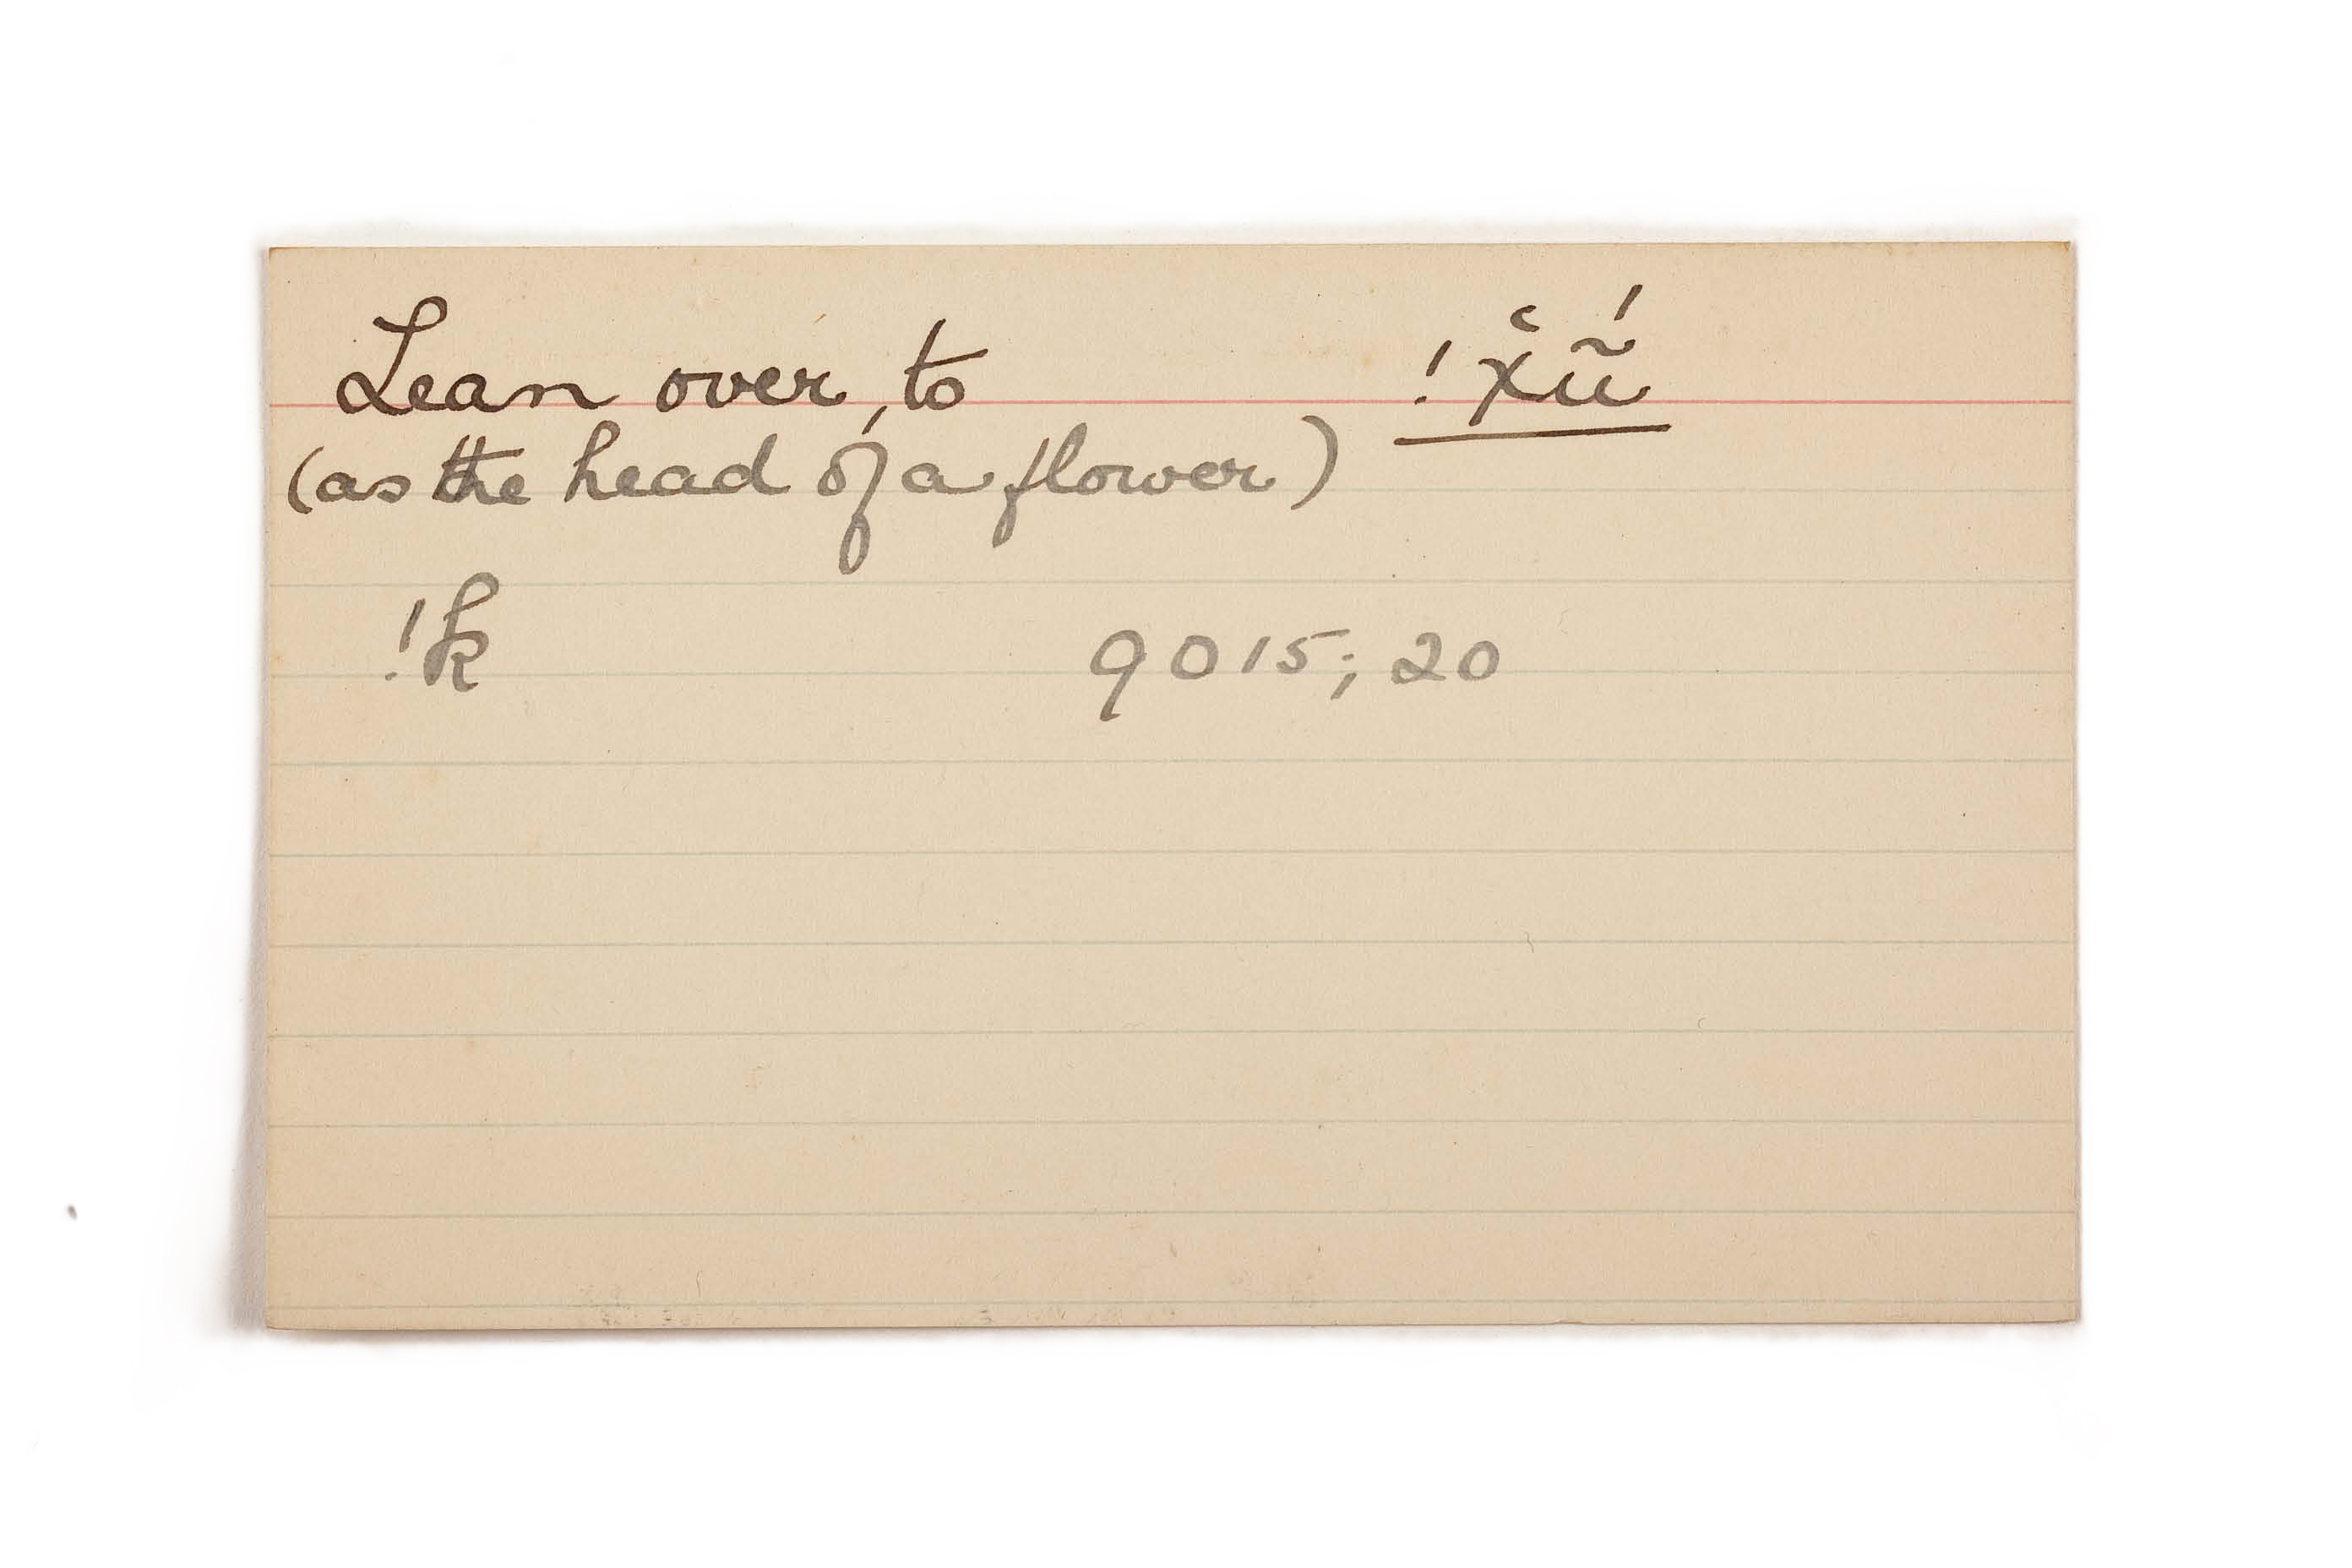 Lean over, to !χ̔ũ̍
(as the head of a flower)
!k 9015; 20